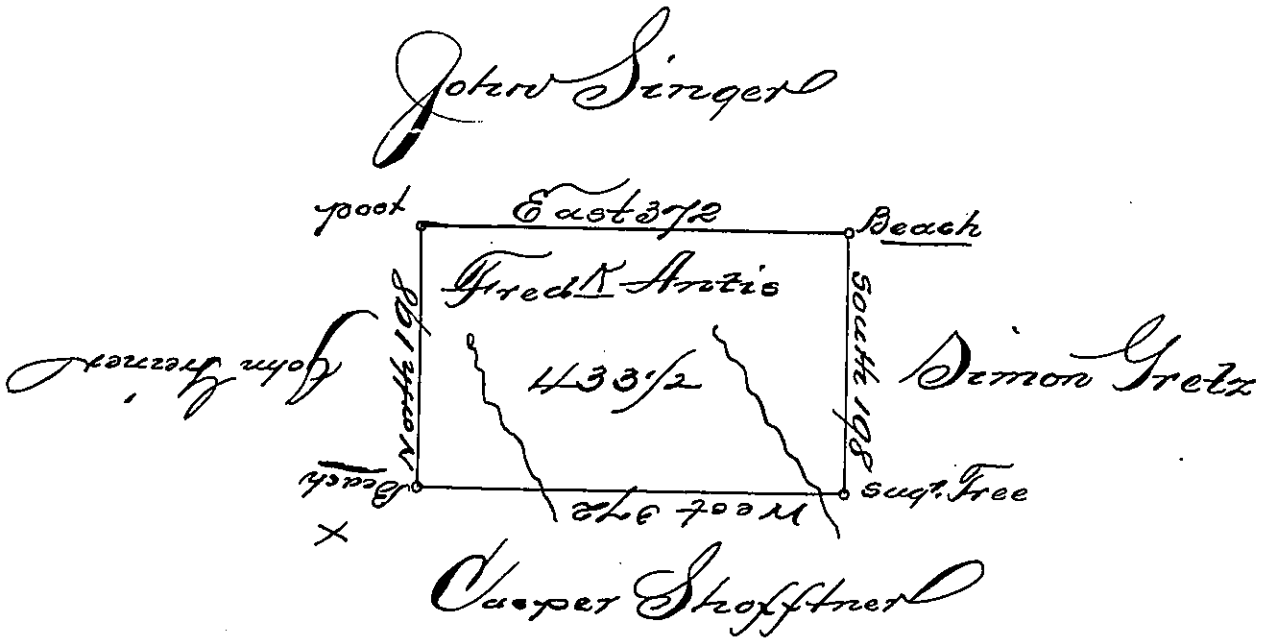 John Singer
post
East 372
Beach
Fredk Antis
North 198
South 198
John
Simon Gretz
433 1/2
Beach
West 372
sugr. Tree
X
Casper Shofftner